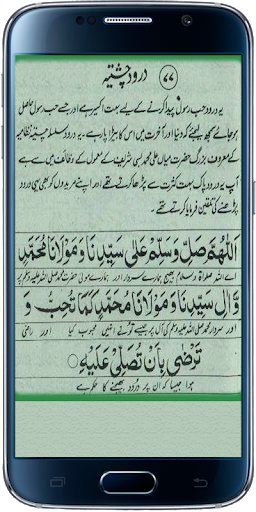 ۷۷ درود چشتیہ
یہ درود حب رسولؐ پیدا کرنے کے لیے بہت اکسیر ہے اور جسے حب رسولؐ حاصل
ہو جائے سمجھ لیجئے کہ دنیا اور آخرت میں اس کا بیڑا پار ہے۔ یہ درود سلسلہ چشتیہ نظامیہ
کے معروف بزرگ حضرت میاں علی محمد بسی شریف کے معمول کے وظائف میں سے ہے
آپ یہ درود پاک بہت کثرت سے پڑھا کرتے تھے اور اپنے مریدوں کو بھی یہی درود
پڑھنے کی تلقین فرمایا کرتے تھے
اَللّٰهُمَّ صَلِّ وَسَلِّمْ عَلٰى سَيِّدِنَا وَمَوْلَانَا مُحَمَّدٍ
اے اللہ صلاۃ و سلام بھیج ہمارے سردار اور ہمارے مولیٰ حضرت محمد صلی اللہ علیہ وسلم پر
وَّ اٰلِ سَيِّدِنَا وَمَوْلَانَا مُحَمَّدٍ كَمَا تُحِبُّ وَ
اور سردار محمد صلی اللہ علیہ وسلم کی آل پر جیسے تو نے انہیں محبوب کیا اور راضی
تَرْضٰى بِاَنْ تُصَلِّىَ عَلَيْهِ
ہوا جیسا کہ ان پر درود بھیجنے کا حکم ہے